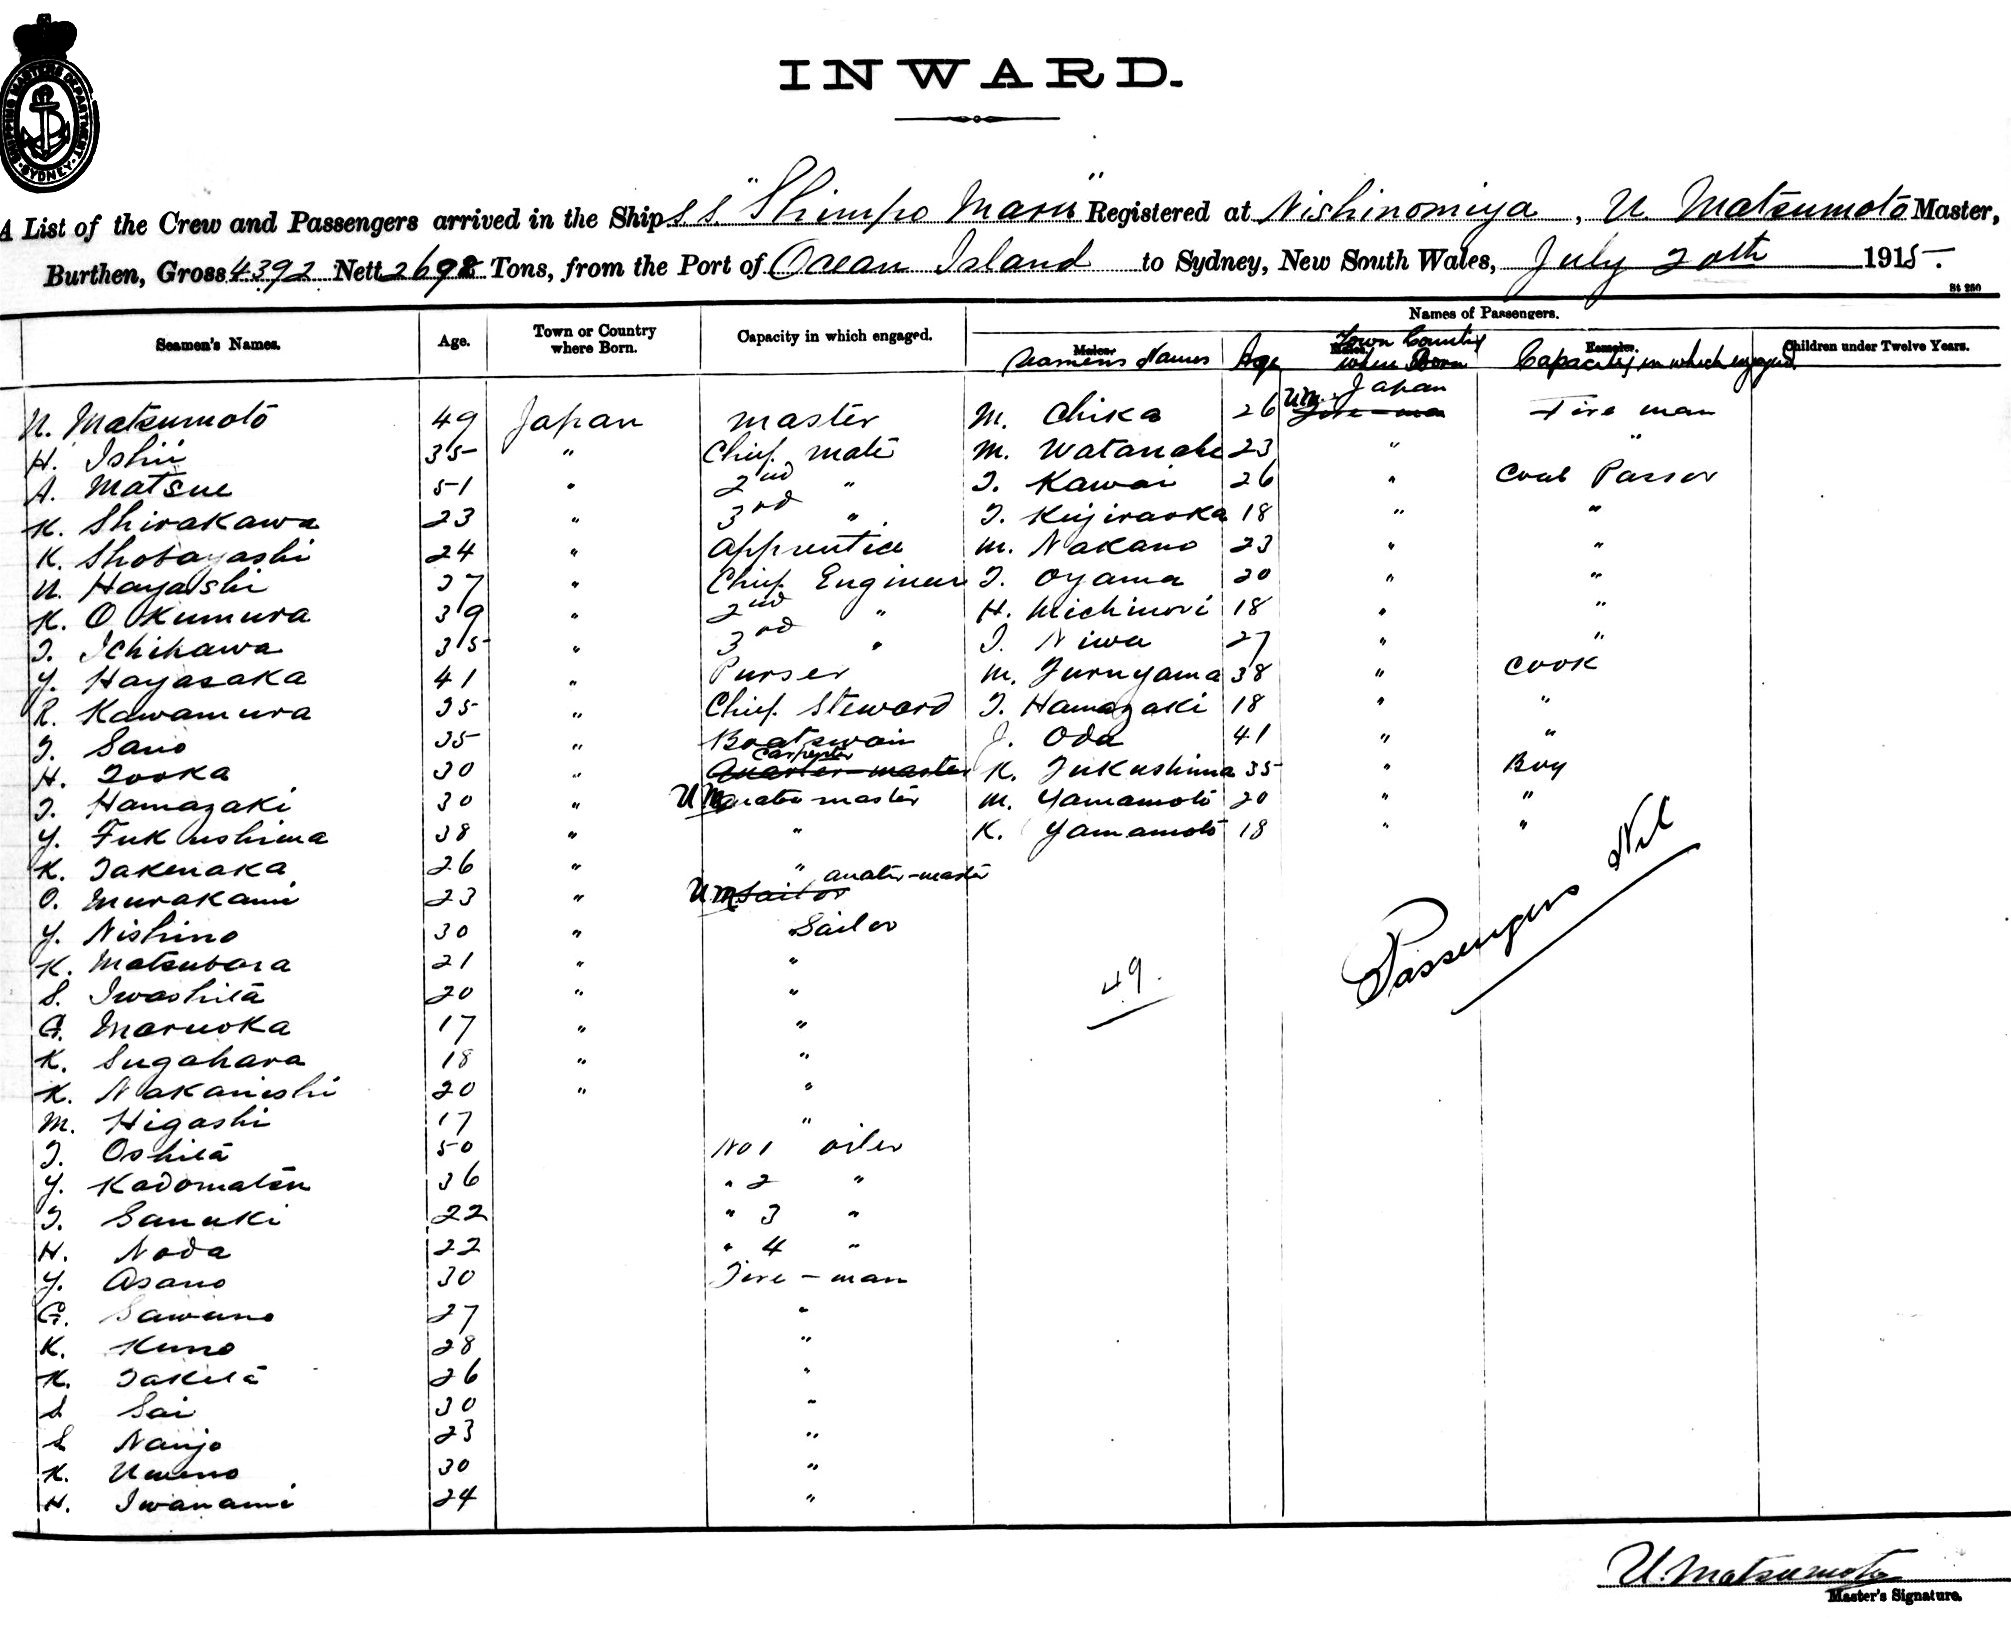 SHIPPING MASTERS DEPARTMENT · SYDNEY ·
INWARD.
A List of the Crew and Passengers arrived in the Ship S.S. "Shimpo Maru" Registered at Nishinomiya, U Matsumoto Master,
Burthen, Gross 4392 Nett 2698 Tons, from the Port of Ocean Island to Sydney, New South Wales, July 20th 1915.
St 280
Names of Passengers.
Seamen's Names. Age. Town or Country where Born. Capacity in which engaged. Males. Seamens Names Age Males. Town Country when Born Females. Capacity in which engaged Children under Twelve Years.
U. Matsumoto 49 Japan master M. Chika 26 Fire-man U.M. Japan Fire man
H. Ishii 35 " Chief mate M. Watanabe 23 " "
A. Matsue 51 " 2nd " T. Kawai 26 " Coal Passer
K. Shirakawa 23 " 3rd " T. Kujiraoka 18 " "
K. Shobayashi 24 " Apprentice M. Nakano 23 " "
U. Hayashi 37 " Chief Engineer T. Oyama 20 " "
K. Okumura 39 " 2nd " H. Michinori 18 " "
T. Ichikawa 35 " 3rd " T. Niwa 27 " "
Y. Hayasaka 41 " Purser M. Furuyama 38 " Cook
R. Kawamura 35 " Chief Steward T. Hamazaki 18 " "
T. Sano 35 " Boatswain J. Oda 41 " "
H. Tooka 30 " Quarter-master Carpenter K. Fukushima 35 " Boy
T. Hamazaki 30 " U M Quater master M. Yamamoto 20 " "
Y. Fukushima 38 " " K. Yamamoto 18 " "
K. Takenaka 26 " "
O. Murakami 23 " U M Sailor Quater-master
Y. Nishino 30 " Sailor
K. Matsubara 21 " "
S. Iwashita 20 " "
G. Maruoka 17 " "
K. Sugahara 18 " "
K. Nakanishi 20 " "
M. Higashi 17 "
T. Oshita 50 No 1 oiler
Y. Kadomatsu 36 " 2 "
T. Sanuki 22 " 3 "
H. Noda 22 " 4 "
Y. Asano 30 Fire-man
G. Sawano 27 "
K. Kuno 28 "
K. Takita 26 "
S Sai 30 "
S Nanjo 23 "
K. Umeno 30 "
H. Iwanami 24 "
49.
Passengers Nil
U. Matsumoto
Master's Signature.